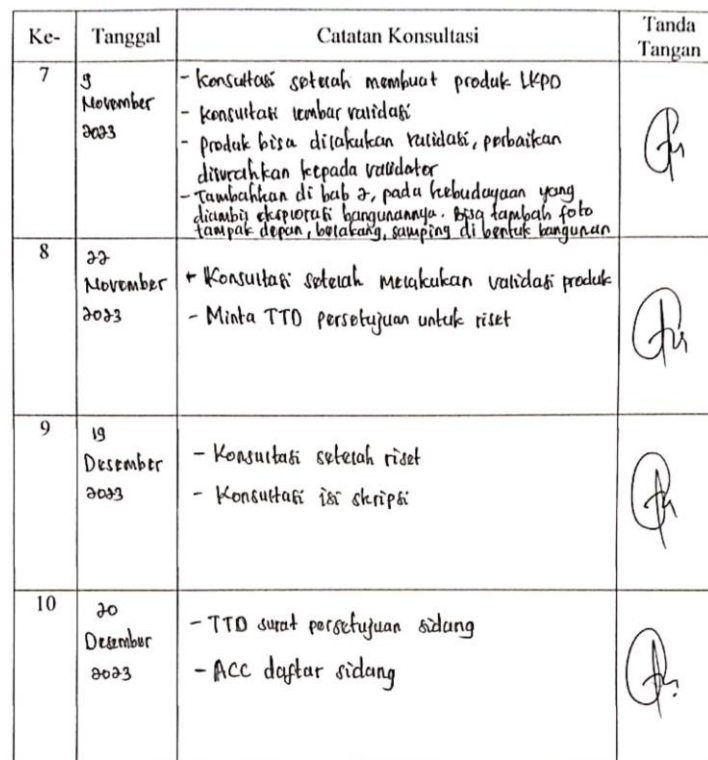 Ke- Tanggal Catatan Konsultasi Tanda Tangan
7
9 November 2023
- Konsultasi setelah membuat produk LKPD
- Konsultasi lembar validasi
- Produk bisa dilakukan validasi, perbaikan
diserahkan kepada validator
- Tambahkan di bab 2, pada kebudayaan yang
diambil eksplorasi bangunannya. Bisa tambah foto
tampak depan, belakang, samping di bentuk bangunan
8
22 November 2023
- Konsultasi setelah melakukan validasi produk
- Minta TTD persetujuan untuk riset
9
19 Desember 2023
- Konsultasi setelah riset
- Konsultasi isi skripsi
10
20 Desember 2023
- TTD surat persetujuan sidang
- ACC daftar sidang